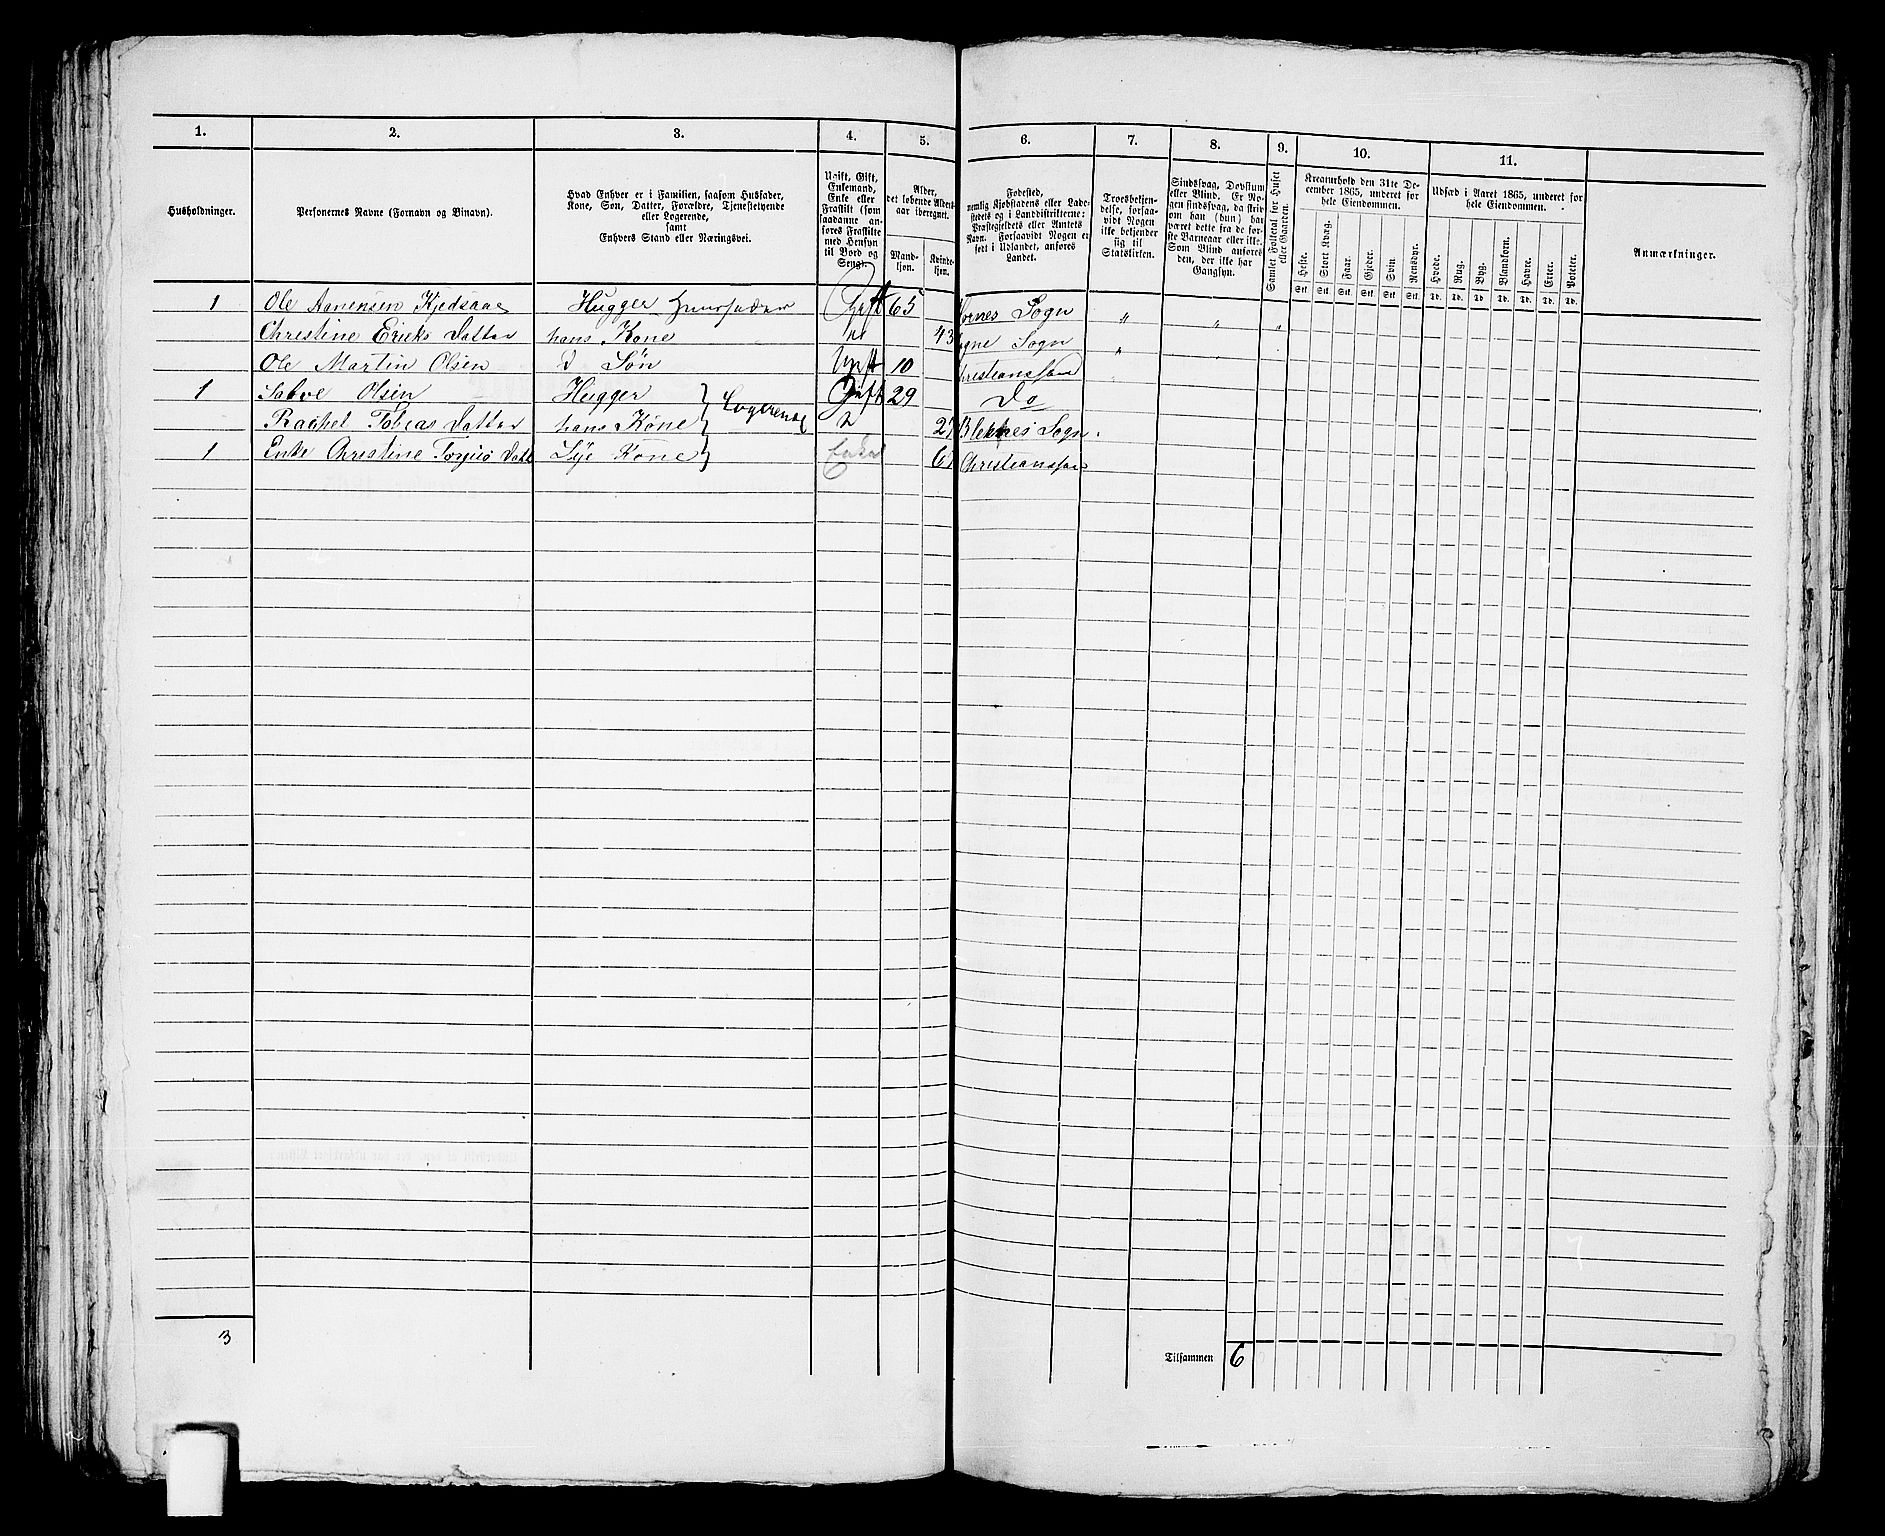 1. 2. 3. 4. 5. 6. 7. 8. 9. 10. 11.
Husholdninger.
Personernes Navne (Fornavn og Binavn).
Hvad Enhver er i Familien, saasom Husfader,
Kone, Søn, Datter, Forældre, Tjenestetyende
eller Logerende,
samt
Enhvers Stand eller Næringsvei.
Ugift, Gift,
Enkemand,
Enke eller
Fraskilt (som
saadanne an-
føres Fraskilte
med Hensyn
til Bord og
Seng).
Alder,
det løbende Alders-
aar iberegnet.
Mand-
kjøn.
Kvinde-
kjøn.
Fødested,
nemlig Kjøbstadens eller Lade-
stedets og i Landdistrikterne:
Præstegjeldets eller Amtets
Navn. Forsaavidt Nogen er
født i Udlandet, anføres
Landet.
Troesbekjen-
delse, forsaa-
vidt Nogen
ikke bekjender
sig til
Statskirken.
Sindssvag, Døvstum
eller Blind. Er No-
gen sindssvag, da skri-
om han (hun) har
været dette fra de før-
ste Barneaar eller ikke.
Som Blind anføres
den, der ikke har
Gangsyn.
Samlet Folketal for Huset
eller Gaarden.
Kreaturhold den 31te De-
cember 1865, underet for
hele Eiendommen.
Heste. Stort Kvæg. Faar. Gjeder. Svin. Rensdyr.
Stk. Stk. Stk. Stk. Stk. Stk.
Udsæd i Aaret 1865, underet for
hele Eiendommen.
Hvede. Rug. Byg. Blandkorn. Havre. Erter. Poteter.
Td. Td. Td. Td. Td. Td. Td.
Anmærkninger.
1 Ole Aanensen Kjedsaae Hugger Huusfader Gift 65 Sogn " " "
Christine Ericks Datter hans Kone 43 Sogn "
Ole Martin Olsen d Søn Ugift 10
1 Salve Olsen Hugger Logerende Gift 29 Do
Rachel Tobias Datter hans Kone Sogn.
1 Enke Christine Datt Kone Enke
3
Tilsammen 6